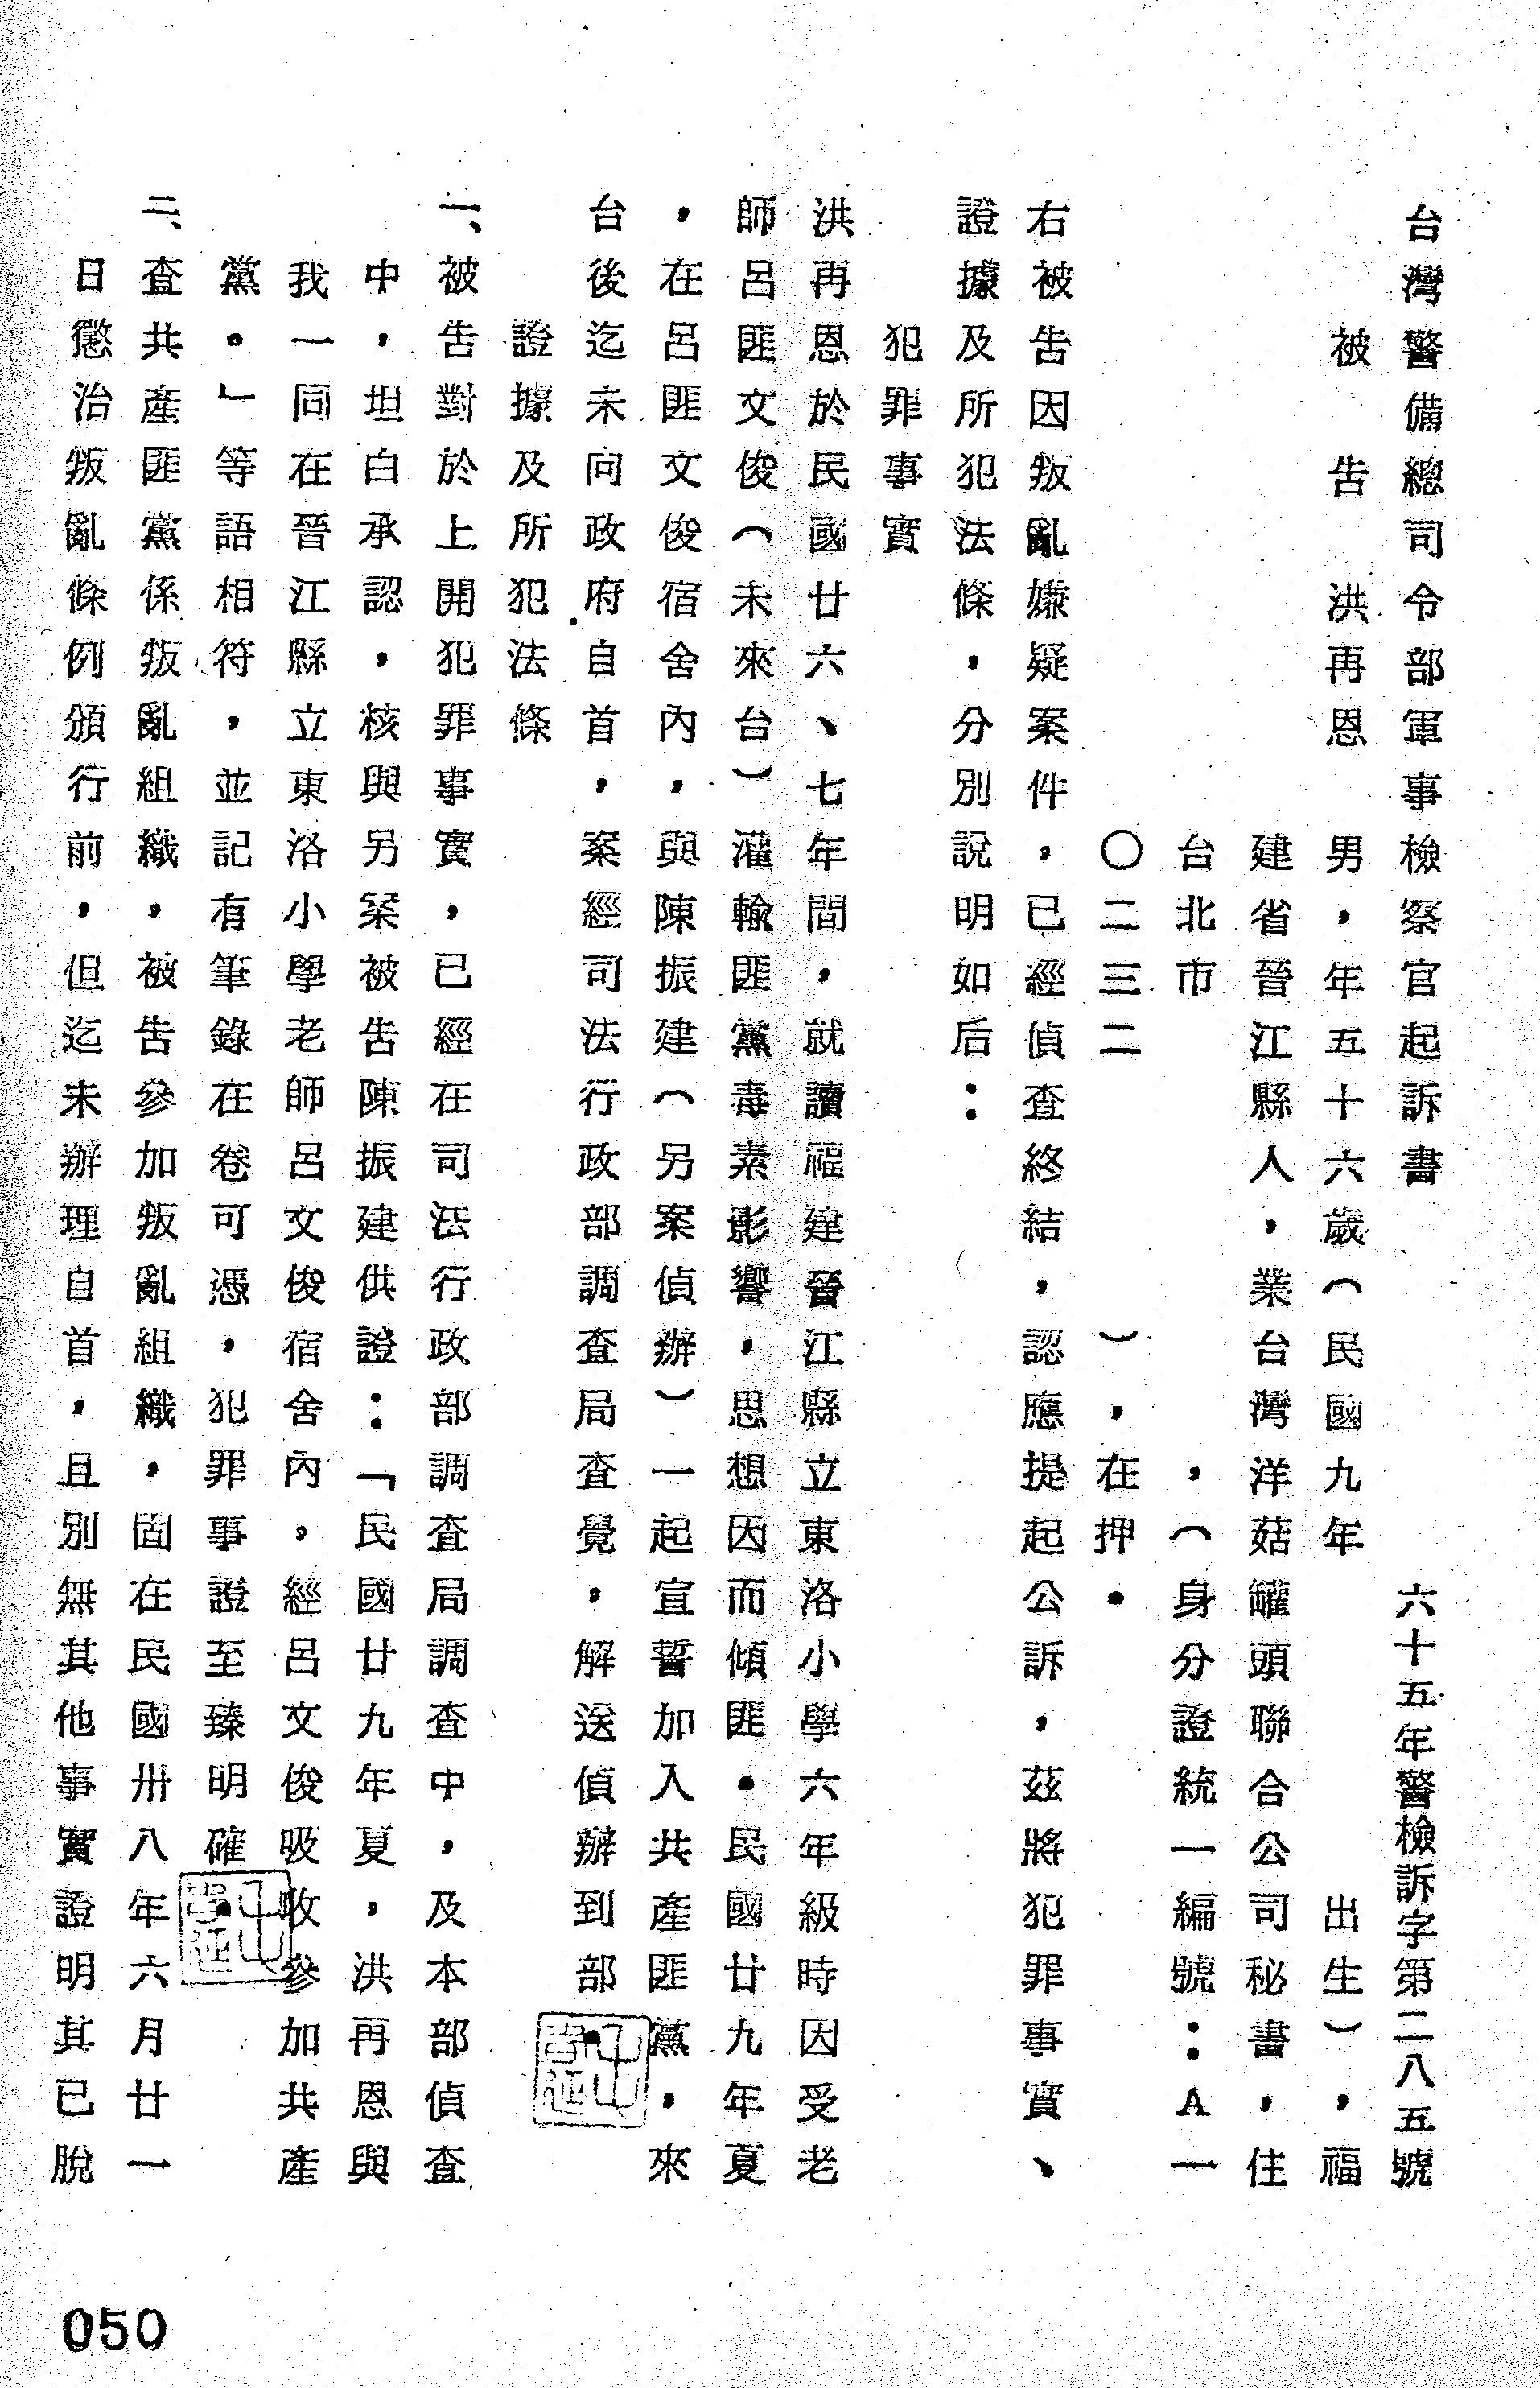 台灣警備總司令部軍事檢察官起訴書
六十五年警檢訴字第二八五號
被告 洪再恩 男，年五十六歲（民國九年 出生），福
建省晉江縣人，業台灣洋菇罐頭聯合公司秘書，住
台北市 ，（身分證統一編號：A一
〇二三二 ），在押。
右被告因叛亂嫌疑案件，已經偵查終結，認應提起公訴，茲將犯罪事實、
證據及所犯法條，分別說明如后：
犯罪事實
洪再恩於民國廿六、七年間，就讀福建晉江縣立東洛小學六年級時因受老
師呂匪文俊（未來台）灌輸匪黨毒素影響，思想因而傾匪。民國廿九年夏
，在呂匪文俊宿舍內，與陳振建（另案偵辦）一起宣誓加入共產匪黨，來
台後迄未向政府自首，案經司法行政部調查局查覺，解送偵辦到部。
證據及所犯法條
一、被告對於上開犯罪事實，已經在司法行政部調查局調查中，及本部偵查
中，坦白承認，核與另案被告陳振建供證：「民國廿九年夏，洪再恩與
我一同在晉江縣立東洛小學老師呂文俊宿舍內，經呂文俊吸收參加共產
黨。」等語相符，並記有筆錄在卷可憑，犯罪事證至臻明確。
二、查共產匪黨係叛亂組織，被告參加叛亂組織，固在民國卅八年六月廿一
日懲治叛亂條例頒行前，但迄未辦理自首，且別無其他事實證明其已脫
050